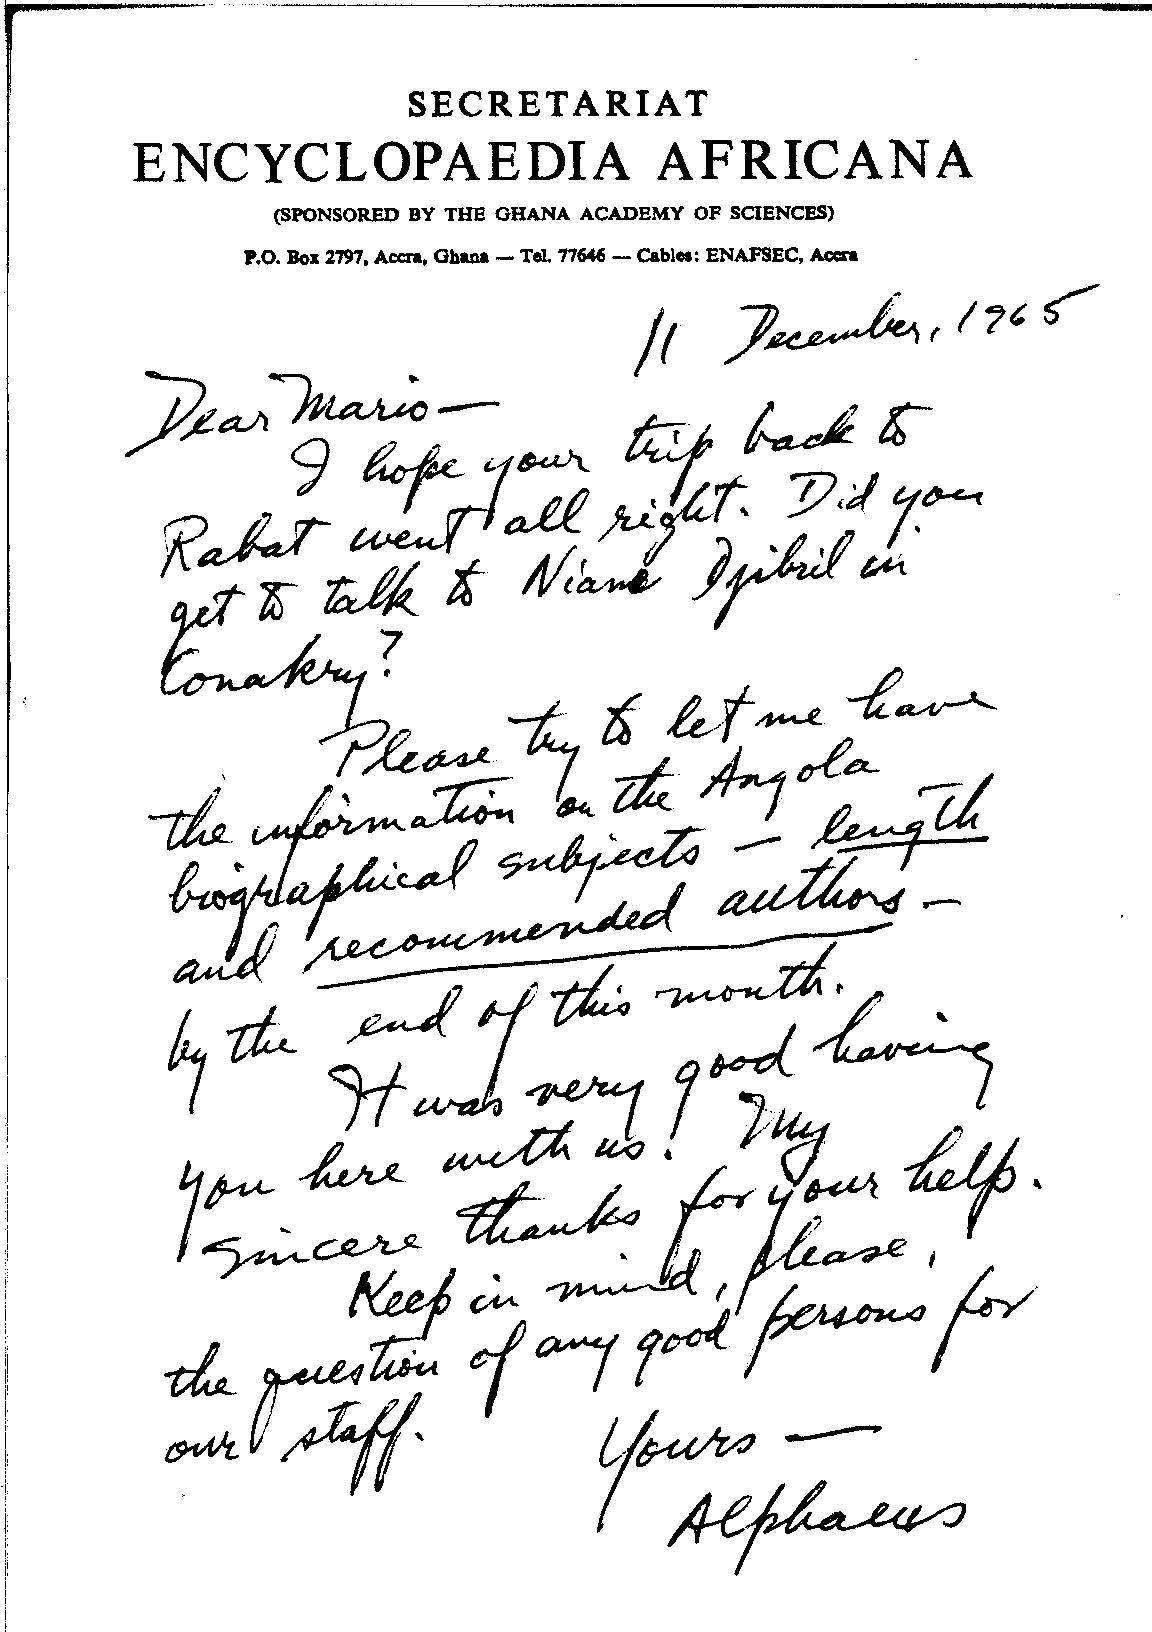 SECRETARIAT
ENCYCLOPAEDIA AFRICANA
(SPONSORED BY THE GHANA ACADEMY OF SCIENCES)
P.O. Box 2797, Accra, Ghana — Tel. 77646 — Cables: ENAFSEC, Accra
11 December, 1965
Dear Mario—
I hope your trip back to
Rabat went all right. Did you
get to talk to Niane Djibril in
Conakry?
Please try to let me have
the information on the Angola
biographical subjects — length
and recommended authors —
by the end of this month.
It was very good having
you here with us! My
sincere thanks for your help.
Keep in mind, please,
the question of any good persons for
our staff.
Yours —
Alphaeus